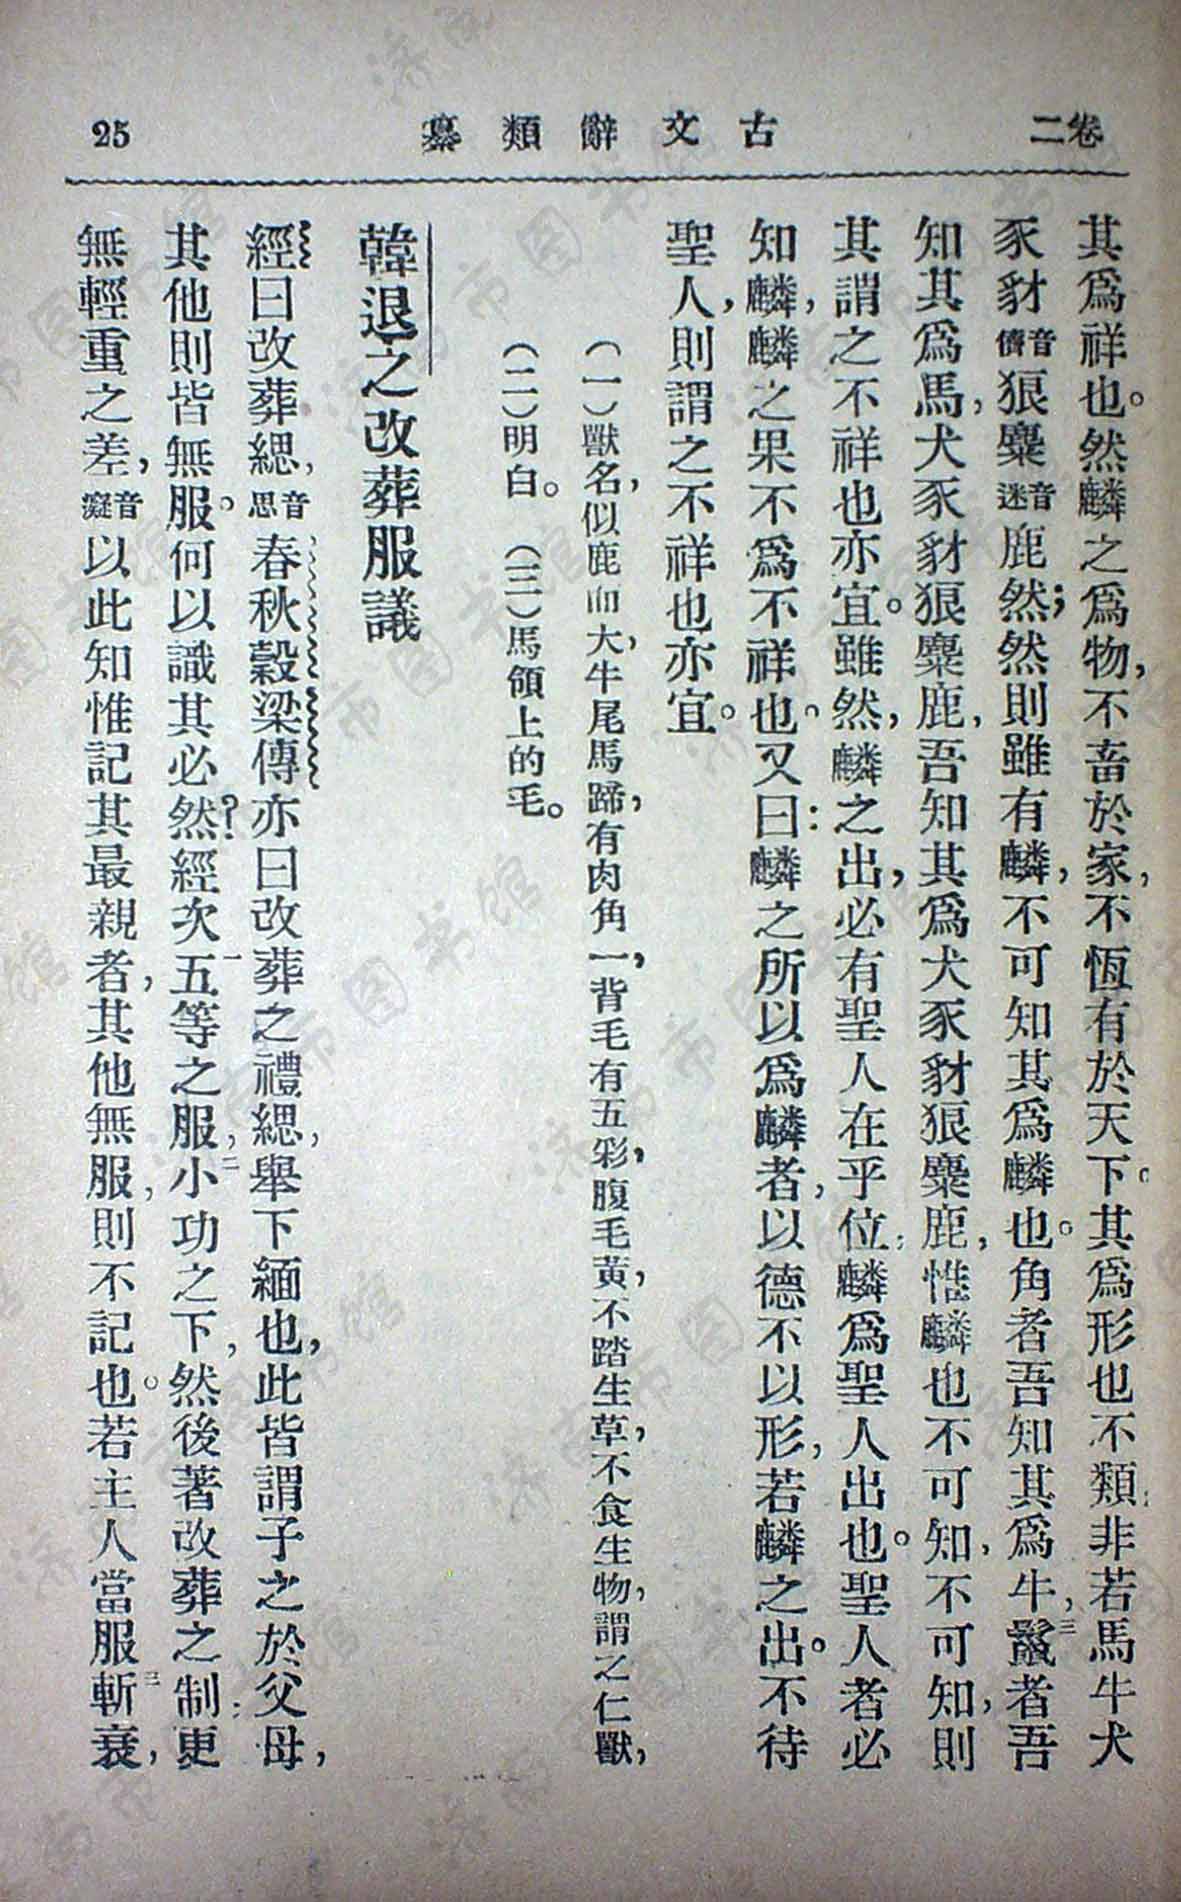 卷二
古文辭類纂
25
其爲祥也。然麟之爲物，不畜於家，不恆有於天下。其爲形也不類；非若馬牛犬
豕豺音儕狼麋音迷鹿然；然則雖有麟，不可知其爲麟也。角者吾知其爲牛，鬣三者吾
知其爲馬，犬豕豺狼麋鹿，吾知其爲犬豕豺狼麋鹿，惟麟也不可知，不可知，則
其謂之不祥也亦宜。雖然，麟之出，必有聖人在乎位；麟爲聖人出也。聖人者必
知麟，麟之果不爲不祥也。又曰：麟之所以爲麟者，以德不以形，若麟之出。不待
聖人，則謂之不祥也亦宜。
（一）獸名，似鹿而大，牛尾馬蹄，有肉角一，背毛有五彩，腹毛黃，不踏生草，不食生物，謂之仁獸，
（二）明白。（三）馬領上的毛。
韓退之改葬服議
經曰改葬緦，音思春秋穀梁傳亦曰改葬之禮緦，舉下緬也，此皆謂子之於父母，
其他則皆無服。何以識其必然？經次五一等之服，小二功之下，然後著改葬之制；更
無輕重之差，音癡以此知惟記其最親者，其他無服，則不記也。若主人當服斬三衰，